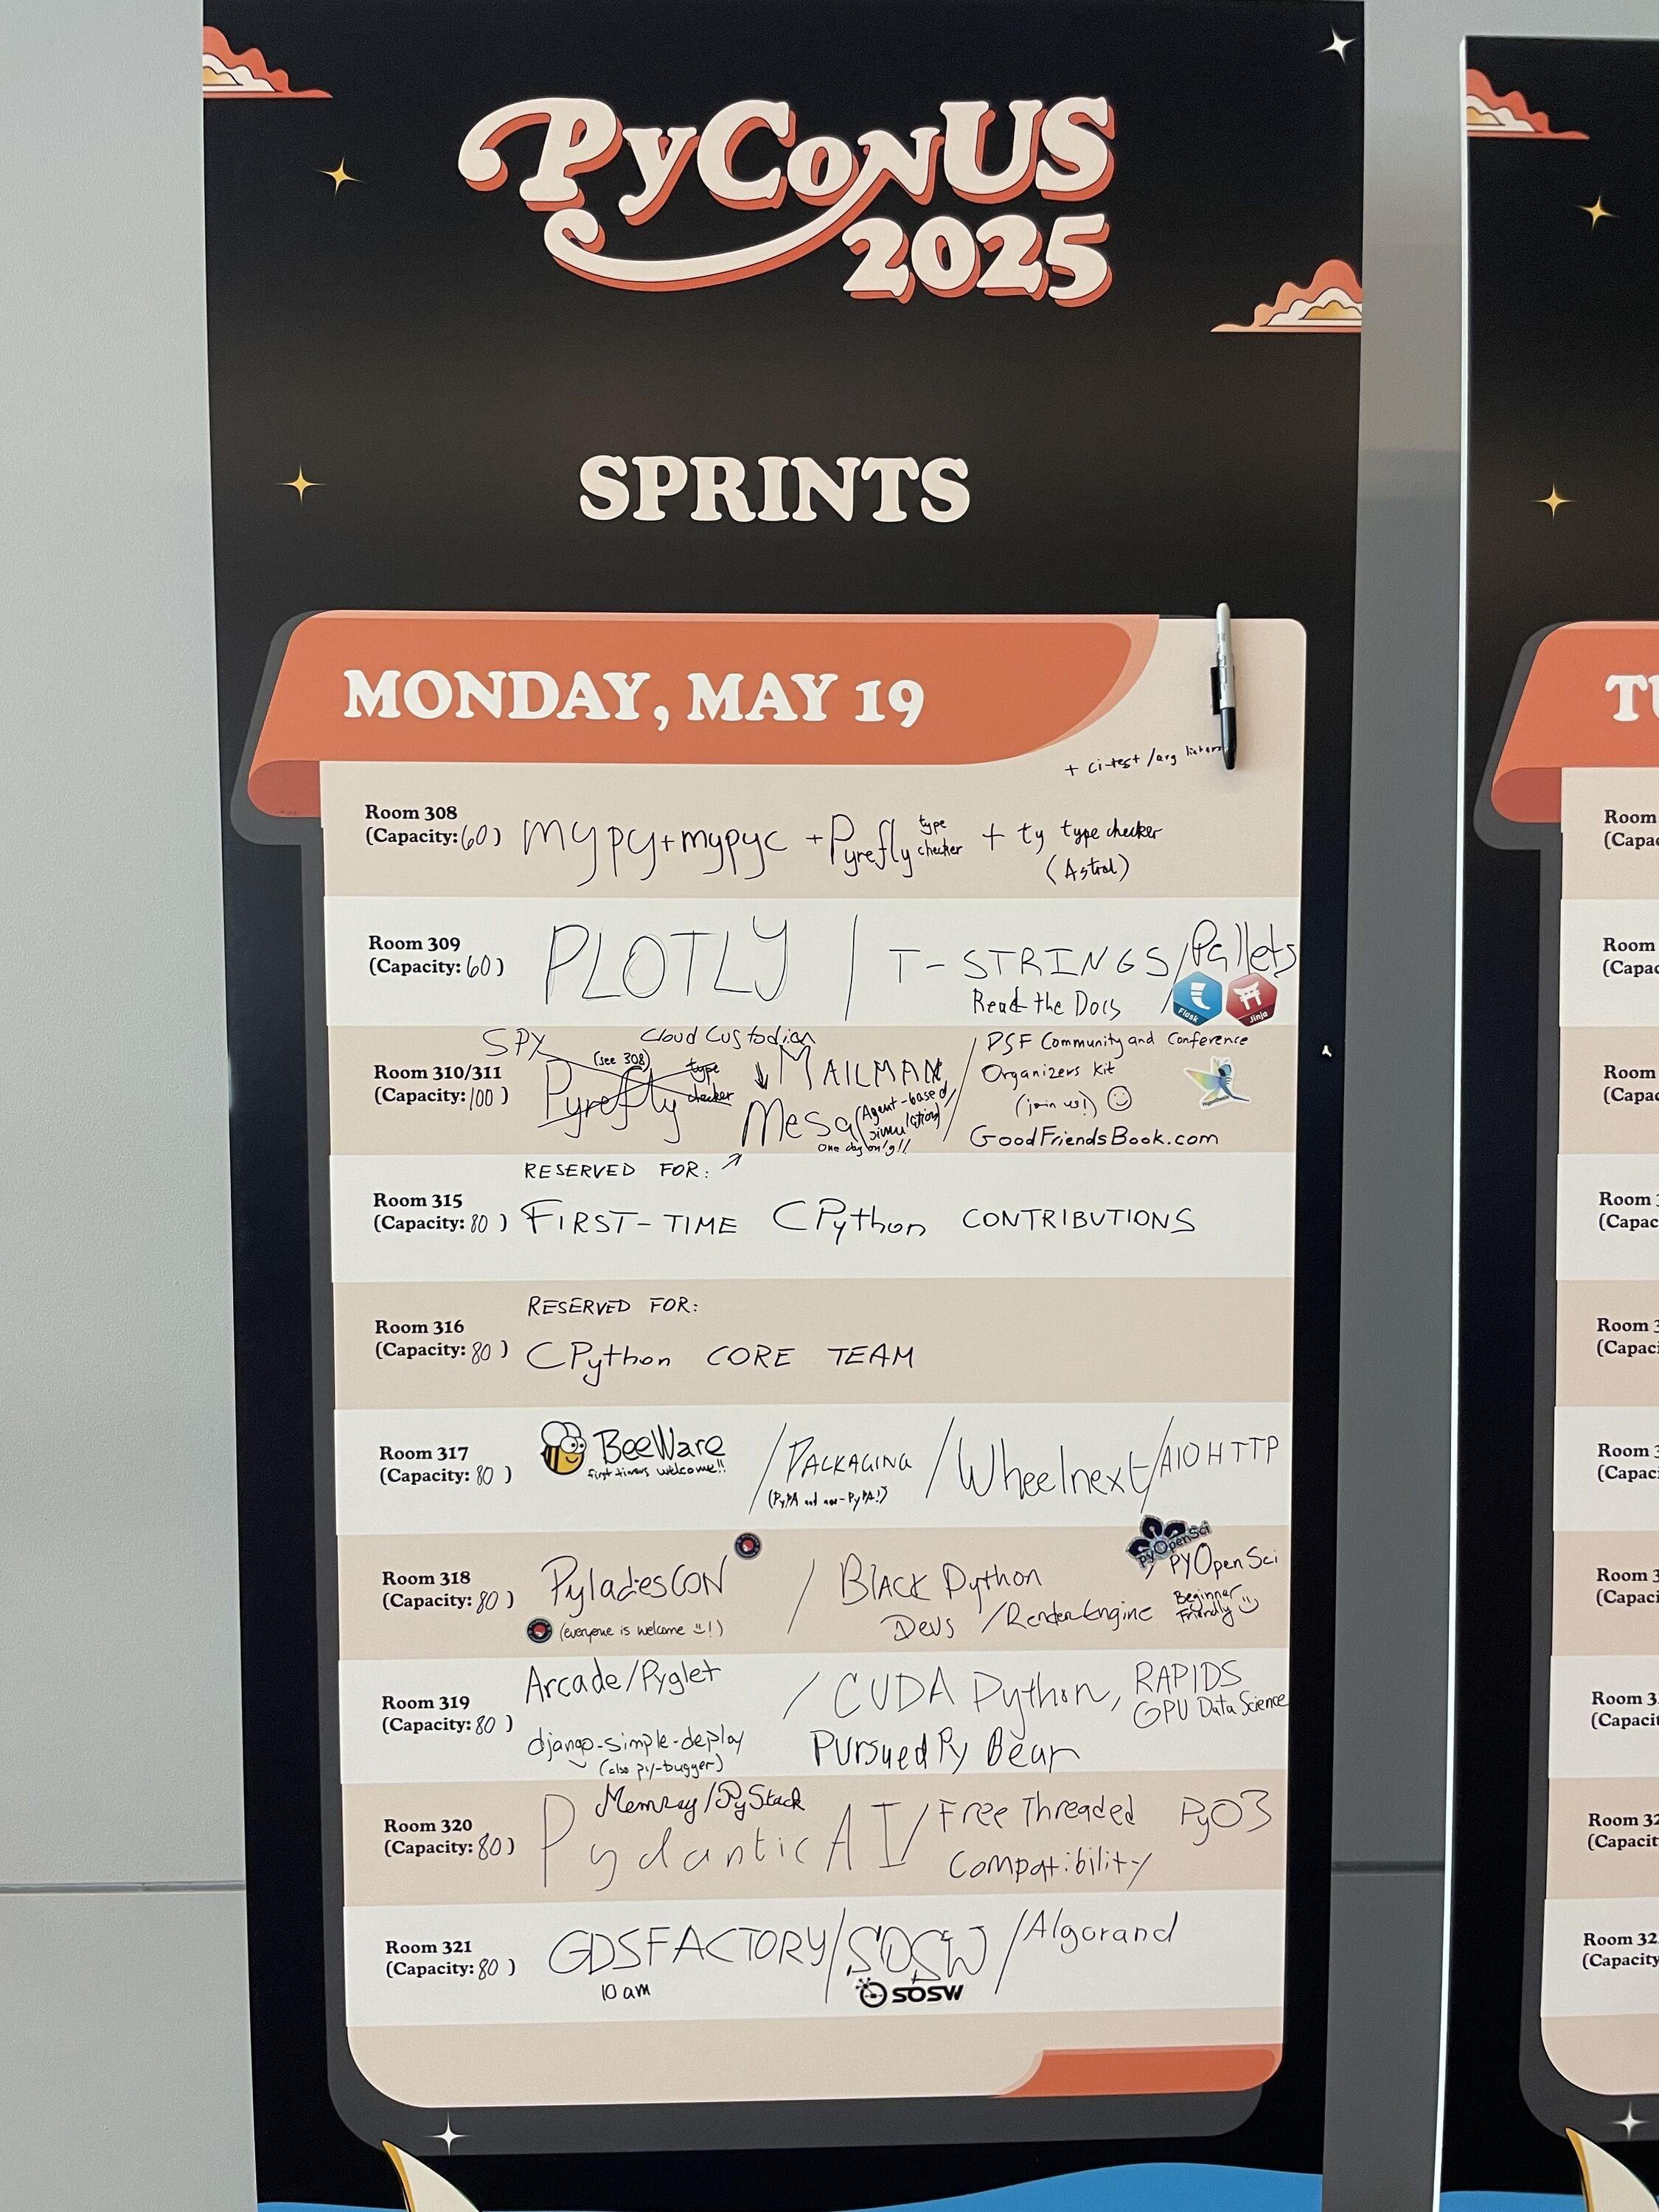 PyConUS
2025
SPRINTS
MONDAY, MAY 19
+ ci-test / arg
Room 308
(Capacity: 60)
mypy + mypyc + Pyrefly type checker + ty type checker
(Astral)
Room 309
(Capacity: 60)
PLOTLY / T-STRINGS / Pallets
Read the Docs
Flask
Jinja
Room 310/311
(Capacity: 100)
SPy
Cloud Custodian
(see 308)
Pyrefly type checker
↓ MAILMAN
Mesa (Agent-based simulation)
One day only!!
/ PSF Community and Conference
Organizers Kit
(join us!) ☺
GoodFriendsBook.com
Room 315
(Capacity: 80)
RESERVED FOR: ↗
FIRST-TIME CPython CONTRIBUTIONS
Room 316
(Capacity: 80)
RESERVED FOR:
CPython CORE TEAM
Room 317
(Capacity: 80)
BeeWare / PACKAGING / Wheelnext / AIOHTTP
first timers welcome!!
(PyPA and non-PyPA!)
Room 318
(Capacity: 80)
PyladiesCON / BLACK Python
Devs / Render Engine
(everyone is welcome ☺!)
pyOpenSci
/ PYOpenSci
Beginner
Friendly ☺
Room 319
(Capacity: 80)
Arcade/Pyglet / CUDA Python, RAPIDS
GPU Data Science
django-simple-deploy
(also py-bugger)
PursuedPyBear
Room 320
(Capacity: 80)
Memray/PyStack
Pydantic AI / Free Threaded
Compatibility
PyO3
Room 321
(Capacity: 80)
GDSFACTORY / SOSW / Algorand
10 am
SOSW
TU
Room
(Capa
Room
(Capac
Room
(Capac
Room 3
(Capac
Room 3
(Capaci
Room 3
(Capac
Room 3
(Capaci
Room 3
(Capacit
Room 32
(Capacity
Room 32
(Capacity